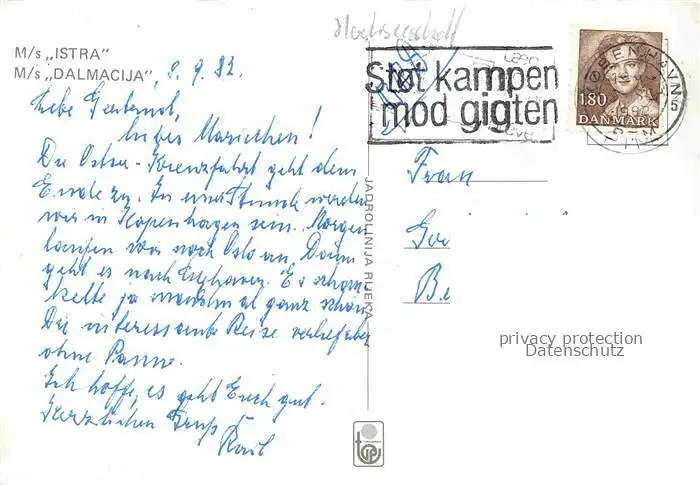 M/s „ISTRA"
M/s „DALMACIJA", 8.9.82.
Liebe Gertrud,
liebes Mariechen!
Die Ostsee-Kreuzfahrt geht dem
Ende zu. In einer Stunde werden
wir in Kopenhagen sein. Morgen
laufen wir noch Oslo an. Dann
geht es nach Cuxhaven. Es schau-
kelte ja manchmal ganz schön.
Die interessante Reise verlief aber
ohne Panne.
Ich hoffe, es geht Euch gut.
Herzlichen Gruß
JADROLINIJA RIJEKA
Støt kampen
mod gigten
KØBENHAVN
1.80
DANMARK
Frau
Be
privacy protection
Datenschutz